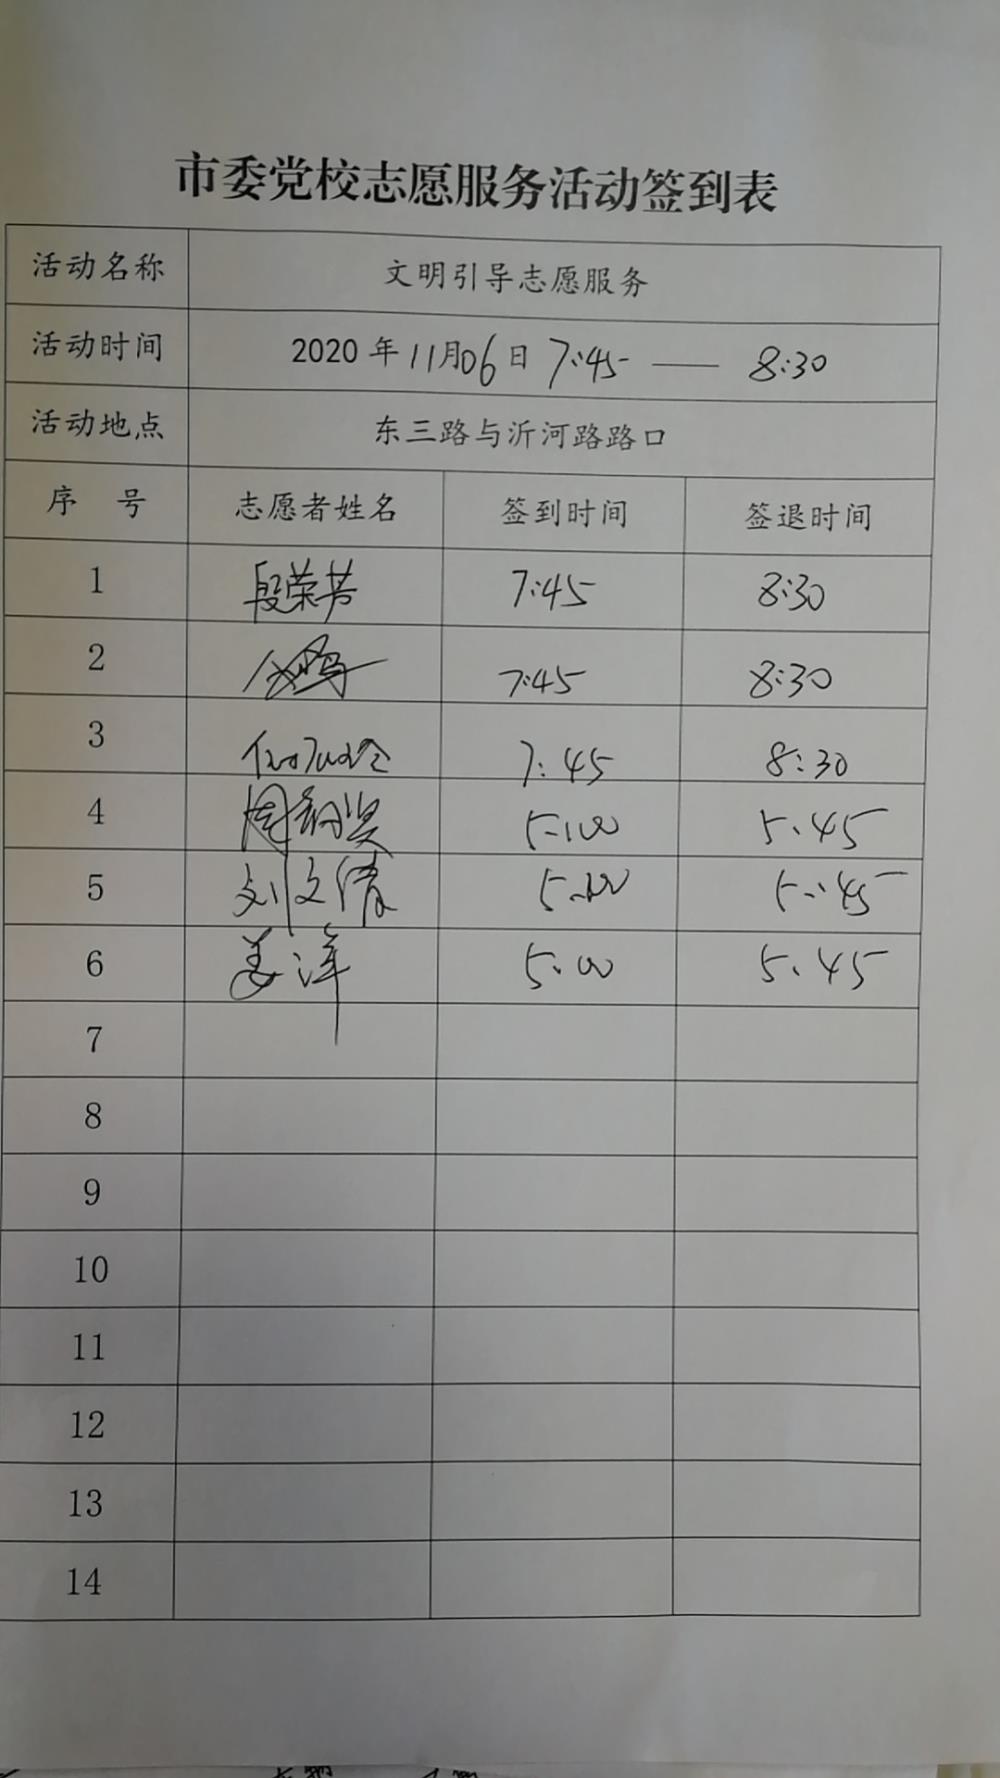 市委党校志愿服务活动签到表
活动名称 文明引导志愿服务
活动时间 2020年11月06日 7:45 —— 8:30
活动地点 东三路与沂河路路口
序 号 志愿者姓名 签到时间 签退时间
1 段荣芳 7:45 8:30
2 7:45 8:30
3 7:45 8:30
4 5:00 5:45
5 刘文清 5:00 5:45
6 姜洋 5:00 5:45
7
8
9
10
11
12
13
14